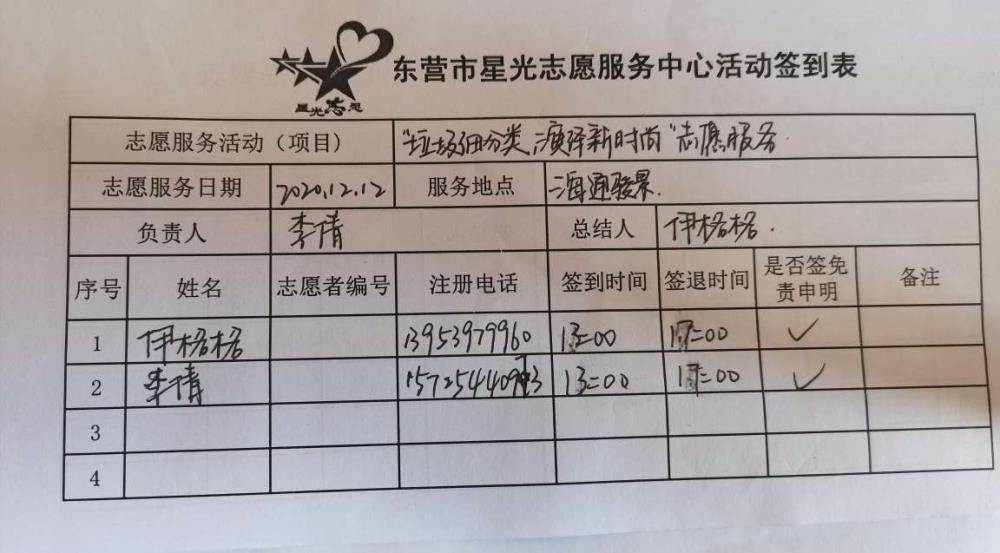 星光志愿
东营市星光志愿服务中心活动签到表
志愿服务活动（项目） “垃圾细分类,演绎新时尚”志愿服务.
志愿服务日期 2020.12.12 服务地点 海通骏景.
负责人 李倩 总结人 伊格格.
序号 姓名 志愿者编号 注册电话 签到时间 签退时间 是否签免责申明 备注
1 伊格格 13953979960 13=00 ✓
2 李倩 13=00 ✓
3
4